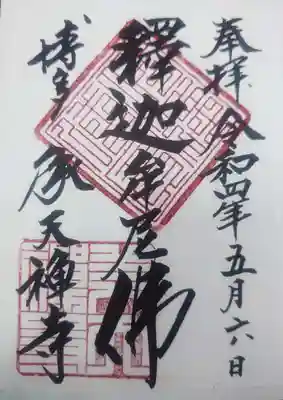 奉拝 令和四年五月六日
釋迦牟尼佛
博多 承天禅寺